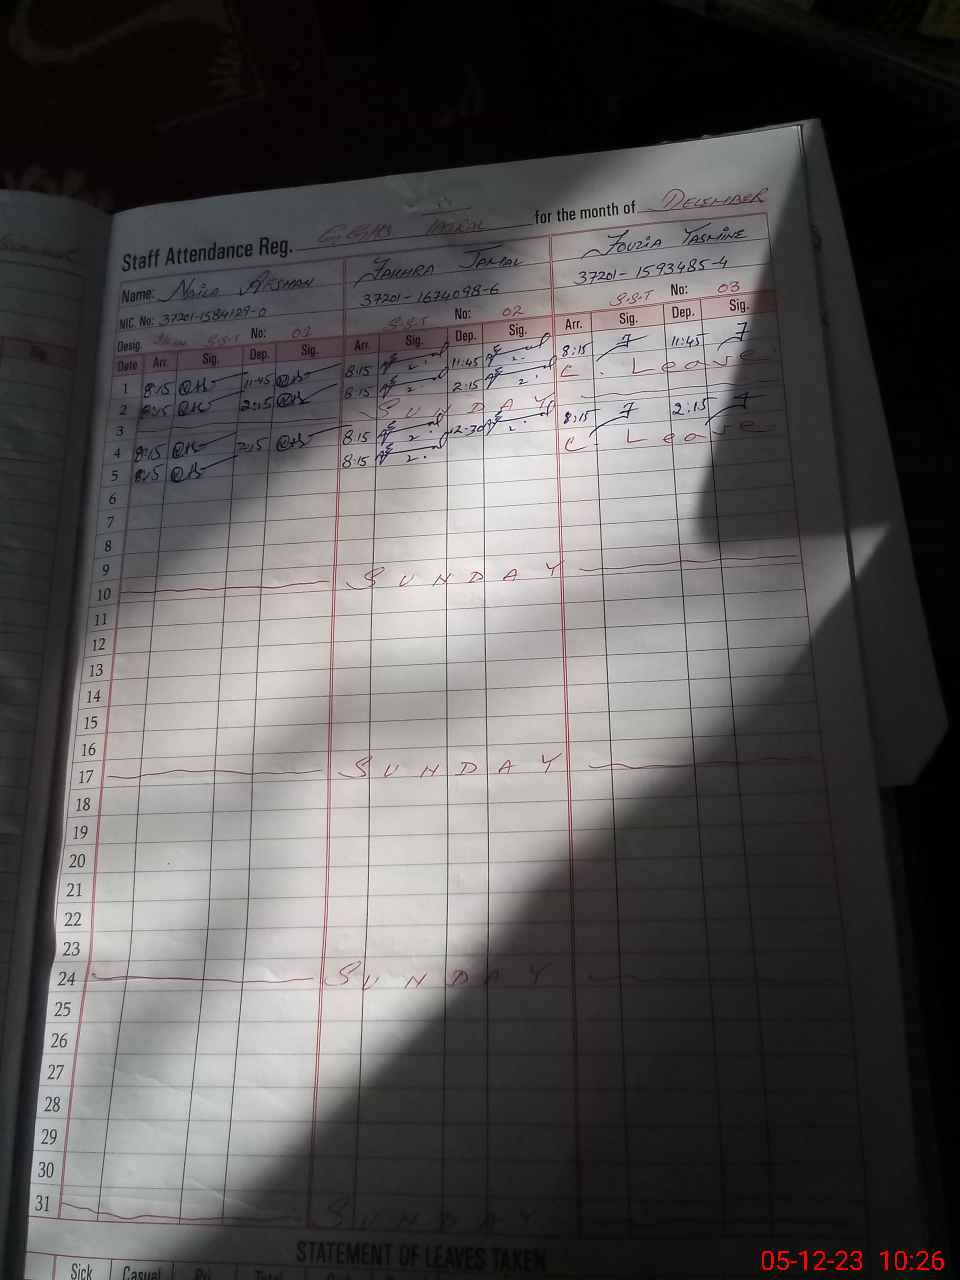 Staff Attendance Reg. for the month of DECEMBER
Name: Naila Jamal Fouzia Yasmine
NIC. No: 37201-1584129-0 37201-1674098-6 37201-1593485-4
Desig. S.S.T No: 01 S.S.T No: 02 S.S.T No: 03
Date Arr. Sig. Dep. Sig. Arr. Sig. Dep. Sig. Arr. Sig. Dep. Sig.
1 8:15 11:45 8:15 11:45 8:15 11:45
2 8:15 2:15 8:15 2:15 C. Leave
3 SUNDAY
4 8:15 2:15 8:15 12-30 8:15 2:15
5 8:15 8:15 C. Leave
6
7
8
9
10 SUNDAY
11
12
13
14
15
16
17 SUNDAY
18
19
20
21
22
23
24 SUNDAY
25
26
27
28
29
30
31 SUNDAY
STATEMENT OF LEAVES TAKEN
Sick Casual Total
05-12-23 10:26